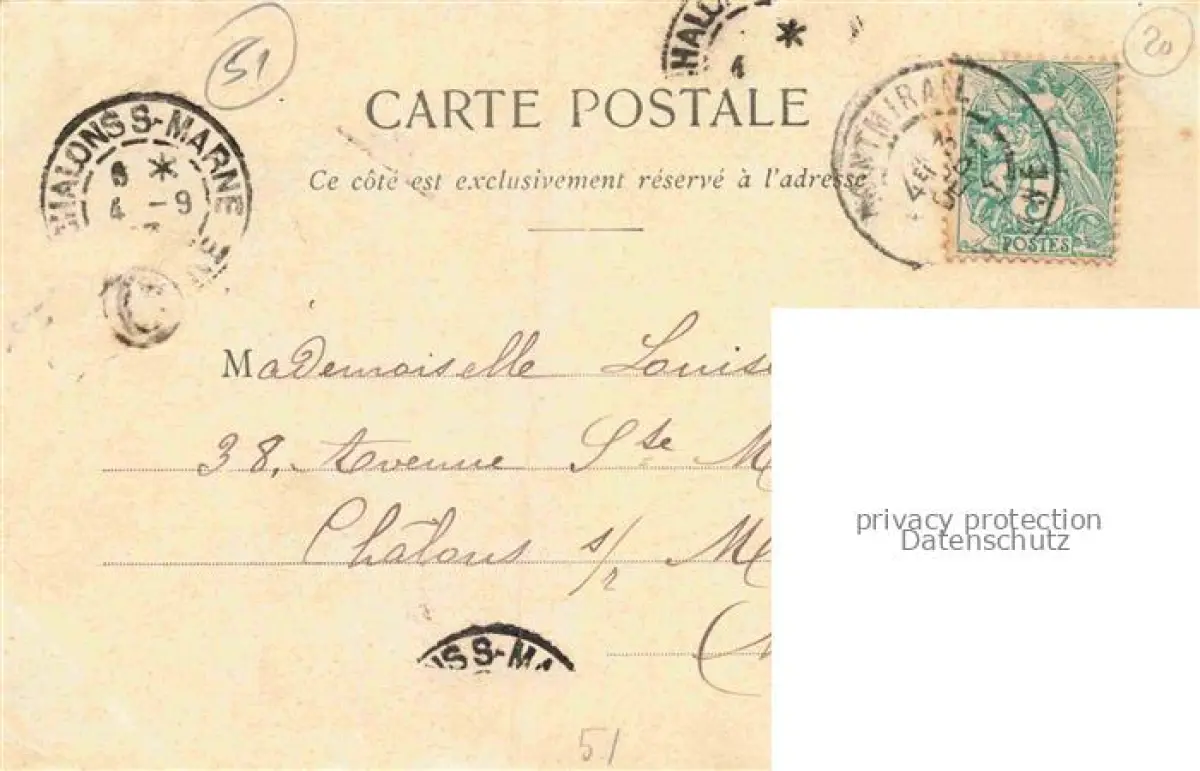 51
20
HALO
*
4
CARTE POSTALE
Ce côté est exclusivement réservé à l'adresse
HALONS S-MARNE
6 *
4 -9
MONTMIRAIL
POSTES
Mademoiselle Louise
38, Avenue Ste M
Châlons s/r M
privacy protection
Datenschutz
NS S-MA
51